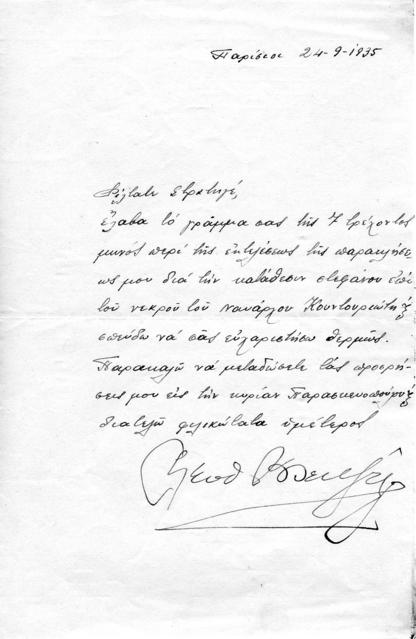 Παρίσιοι 24-9-1935
Φίλτατε Στρατηγέ,
Ἔλαβα τὸ γράμμα σας τῆς 7 τρέχοντος
μηνὸς περὶ τῆς ἐκτελέσεως τῆς παρακλήσε
ως μου διὰ τὴν κατάθεσιν στεφάνου ἐπὶ
τοῦ νεκροῦ τοῦ Ναυάρχου Κουντουριώτη &
σπεύδω νὰ σᾶς εὐχαριστήσω θερμῶς.
Παρακαλῶ νὰ μεταδώσετε τὰς προσρή-
σεις μου εἰς τὴν κυρίαν Παρασκευοπούλου &
διατελῶ φιλικώτατα ὑμέτερος